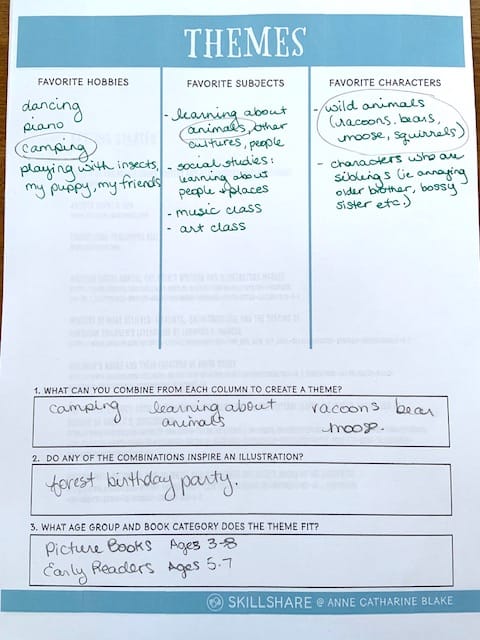 THEMES
FAVORITE HOBBIES
dancing
piano
camping
playing with insects,
my puppy, my friends
FAVORITE SUBJECTS
- learning about
animals, other
cultures, people
- social studies:
learning about
people + places
- music class
- art class
FAVORITE CHARACTERS
- wild animals
(racoons, bears,
moose, squirrels)
- characters who are
siblings (ie annoying
older brother, bossy
sister etc.)
1. WHAT CAN YOU COMBINE FROM EACH COLUMN TO CREATE A THEME?
camping learning about racoons bear
animals moose.
2. DO ANY OF THE COMBINATIONS INSPIRE AN ILLUSTRATION?
forest birthday party.
3. WHAT AGE GROUP AND BOOK CATEGORY DOES THE THEME FIT?
Picture Books Ages 3-8
Early Readers Ages 5-7
SKILLSHARE @ ANNE CATHARINE BLAKE